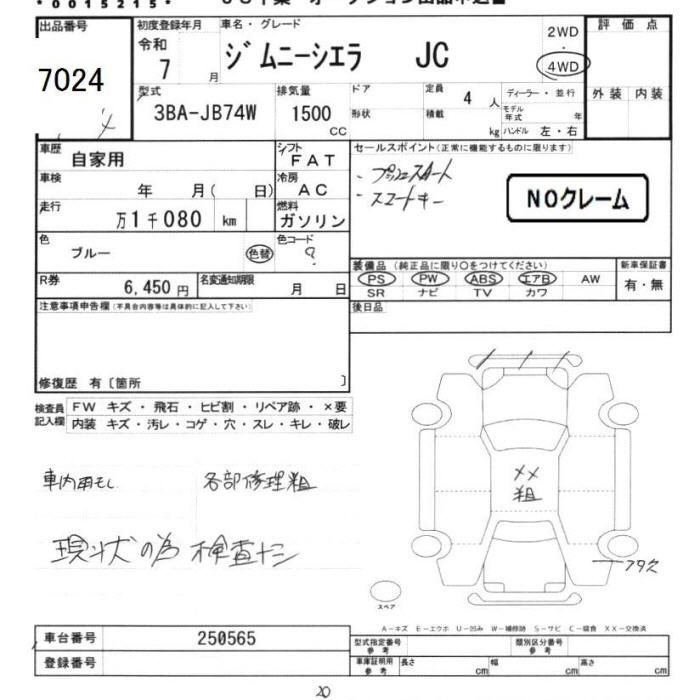 *0015215*
出品番号
7024
初度登録年月
令和
7 月
車名・グレード
ジムニーシエラ JC
2WD
・
4WD
評価点
外装 内装
型式
3BA-JB74W
排気量
1500
CC
ドア
形状
定員
4 人
積載
kg
ディーラー・並行
モデル年式 年
ハンドル 左・右
車歴
自家用
シフト
FAT
車検
年 月( 日)
冷房
AC
走行
万1千080 km
燃料
ガソリン
色
ブルー
色替
色コード
?
R券
6,450 円
名変通知期限
月 日
セールスポイント(正常に機能するものに限ります)
・プッシュスタート
・スマートキー
NOクレーム
装備品(純正品に限り○をつけてください)
PS PW ABS エアB AW
SR ナビ TV カワ
新車保証書
有・無
後日品
注意事項申告欄(不具合内容等は具体的に記入して下さい)
修復歴 有〔箇所 〕
検査員記入欄
FW キズ・飛石・ヒビ割・リペア跡・×要
内装 キズ・汚レ・コゲ・穴・スレ・キレ・破レ
車内用モし
各部修理粗
現状の為 検査ナシ
XX
粗
スペア
A-キズ E-エクボ U-凹み W-補修跡 S-サビ C-腐食 XX-交換済
車台番号 250565
登録番号
型式指定番号 参考
類別区分番号 参考
車庫証明用 参考
長さ cm
幅 cm
高さ cm
20